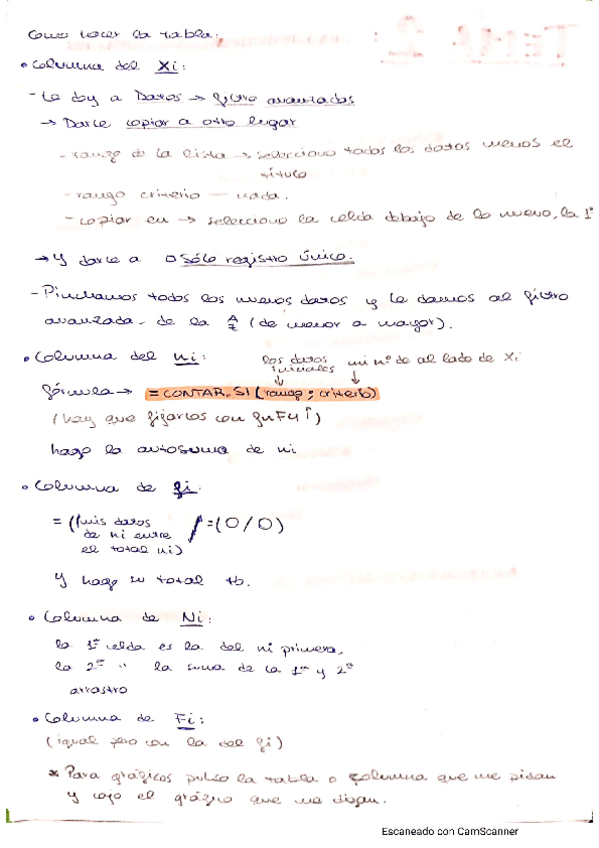 Como hacer la tabla:
• Columna del Xi:
- Le doy a Datos → filtro avanzados
→ Darle copiar a otro lugar
- rango de la lista → selecciono todos los datos menos el
título
- rango criterio — nada.
- copiar en → selecciono la celda debajo de lo nuevo, la 1ª
→ Y darle a □ Sólo registro único.
- Pinchamos todos los nuevos datos y le damos al filtro
avanzada. de la A/Z (de menor a mayor).
• Columna del ni: los datos iniciales mi nº de al lado de Xi
fórmula → = CONTAR.SI (rango ; criterio)
(hay que fijarlos con fnF4↑)
hago la autosuma de ni
• Columna de fi:
= (mis datos
de ni entre /=(O/O)
el total ni)
Y hago su total tb.
• Columna de Ni:
la 1ª celda es la del ni primera,
la 2ª " la suma de la 1ª y 2ª
arrastro
• Columna de Fi:
(igual pero con la del fi)
* Para gráficos pulso la tabla o columna que me pidan
y cojo el gráfico que me digan.
TEMA 2:
Escaneado con CamScanner